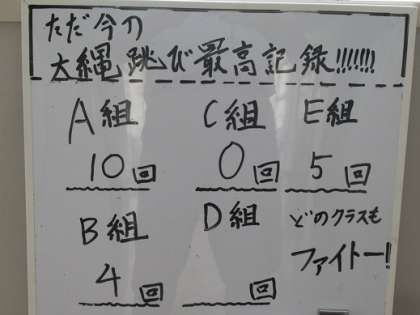 ただ今の
大縄跳び最高記録!!!!!!!
A組 C組 E組
10回 0回 5回
B組 D組 どのクラスも
4回 回 ファイトー!